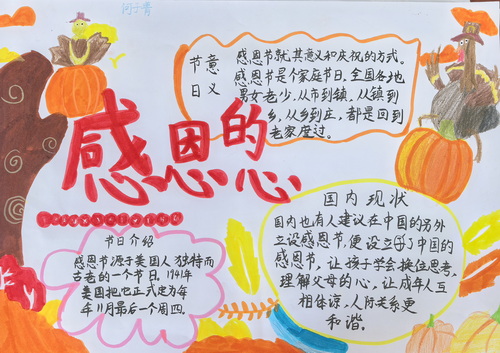 节意
日义
感恩节就其意义和庆祝的方式。
感恩节是个家庭节日，全国各地
男女老少，从市到镇，从镇到
乡，从乡到庄，都是回到
老家度过。
感恩的心
节日介绍
感恩节源于美国人独特而
古老的一个节日。1941年
美国把它正式定为每
年11月最后一个周四。
国内现状
国内也有人建议在中国的另外
立设感恩节，便设立了中国的
感恩节，让孩子学会换位思考，
理解父母的心，让成年人互
相体谅，人际关系更
和谐。